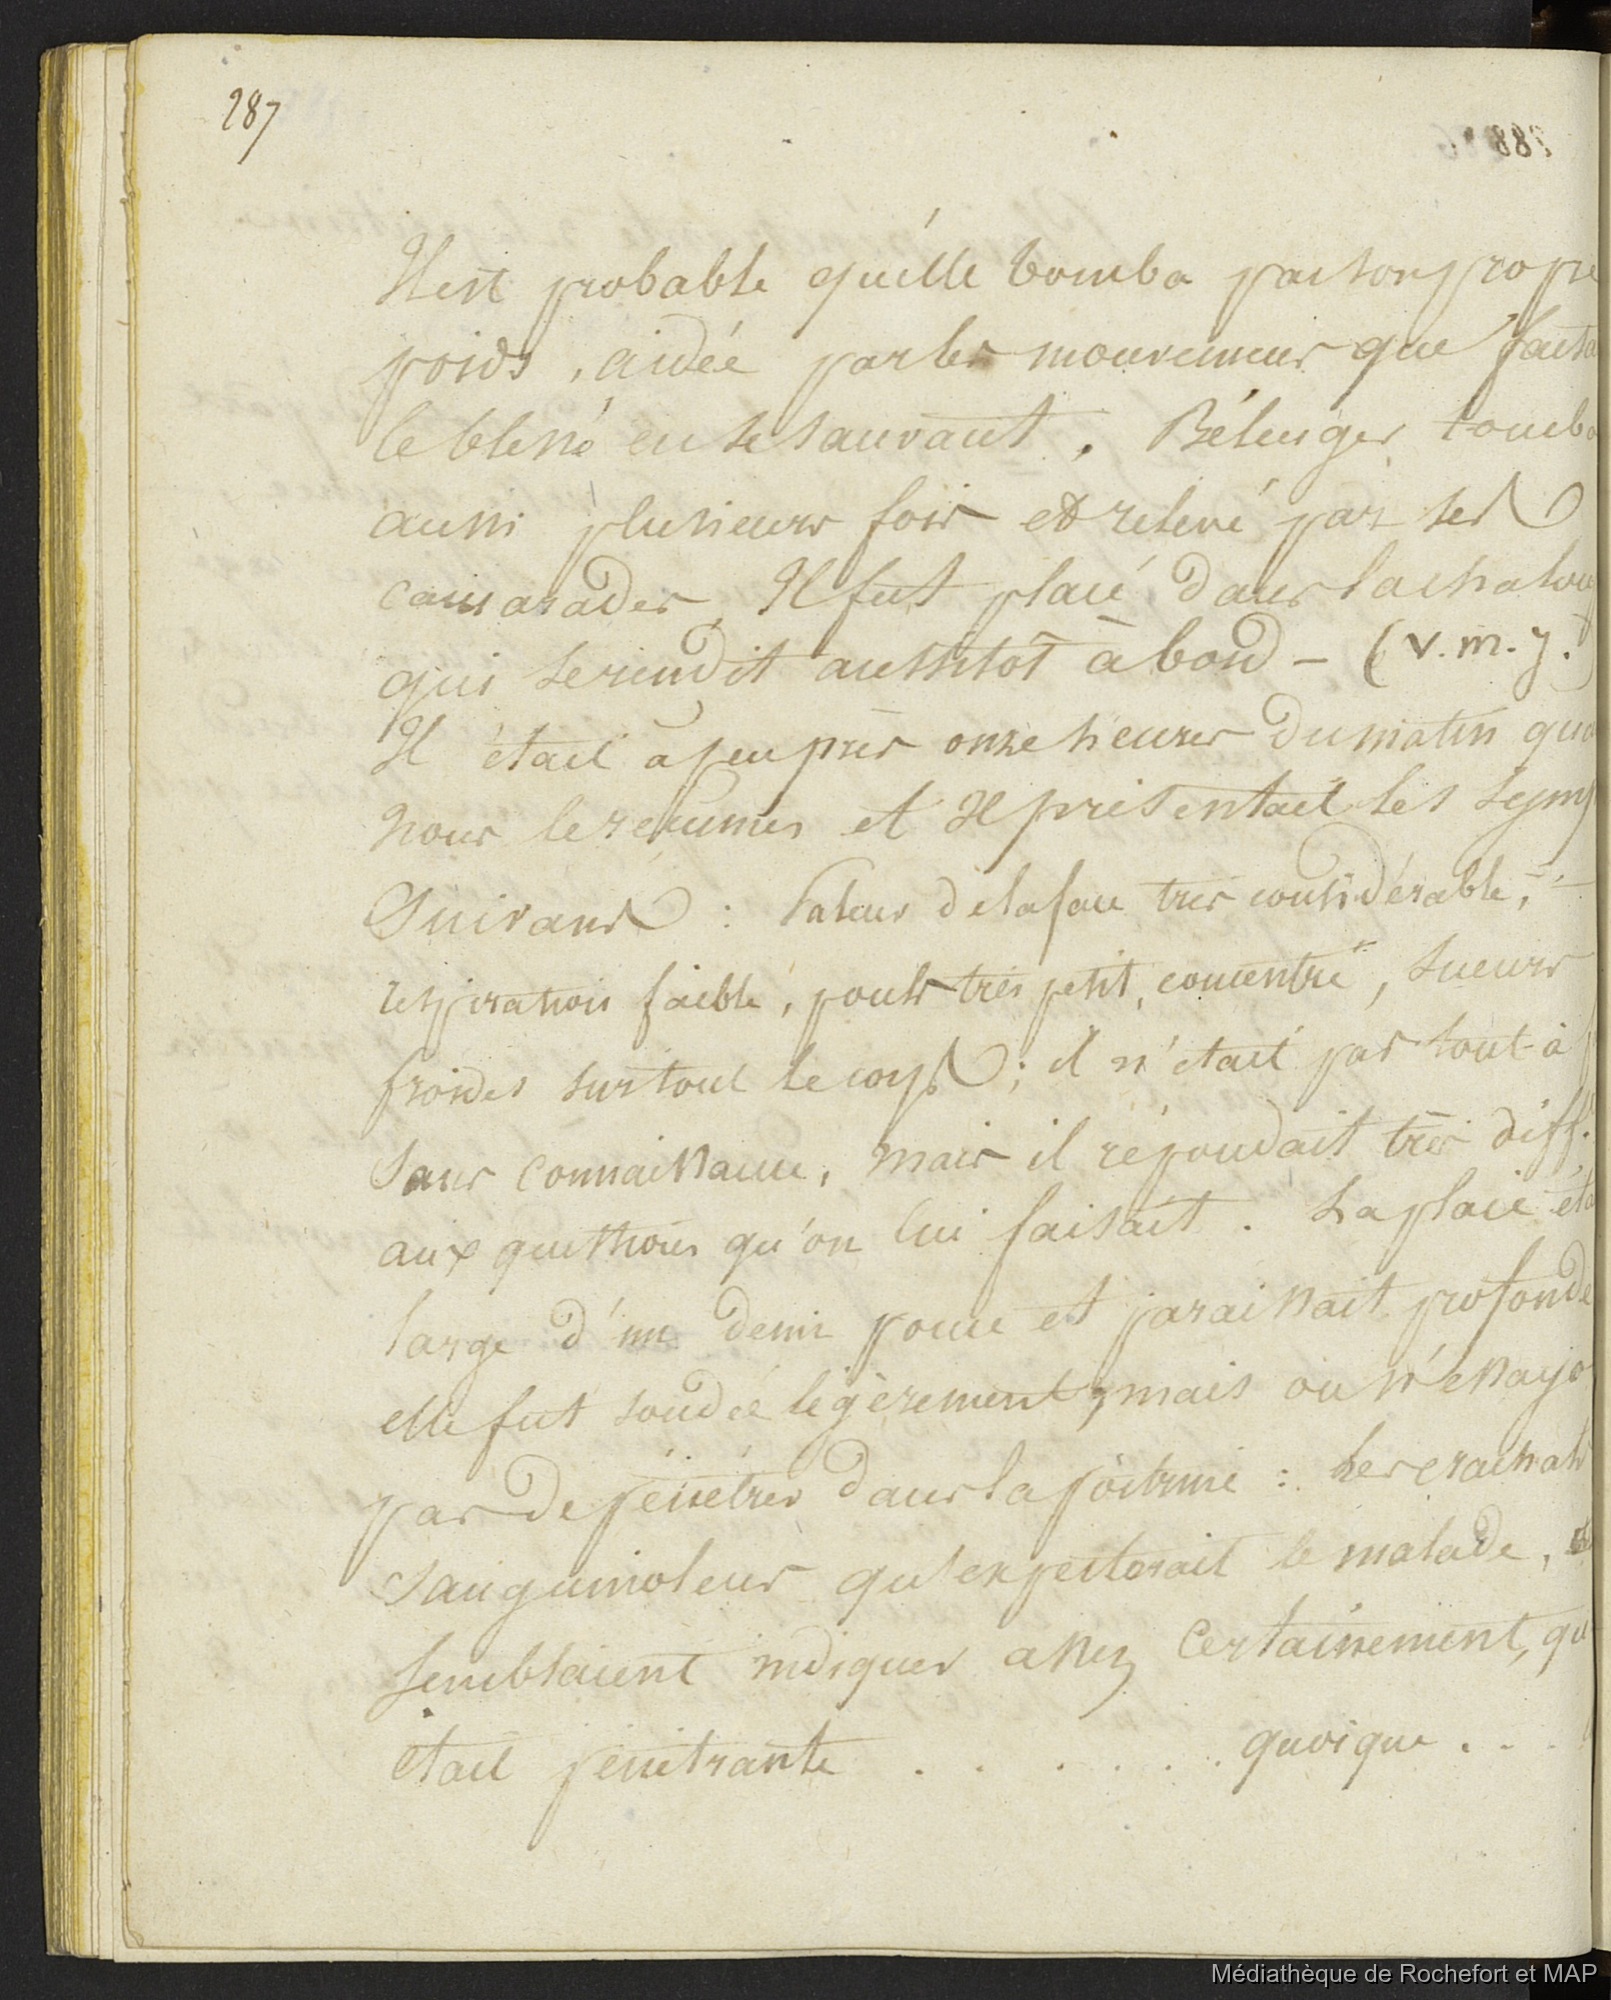 287
Il est probable qu'elle tomba par son propre
poids, aidée par les mouvemens que faisa
le blessé en se sauvant. Bélenger tomba
aussi plusieurs fois et relevé par ses
camarades, Il fut placé dans la chalou
qui se rendit aussitôt à bord - (V. m. J.)
Il était à peu près onze heures du matin qua
nous le reçumes et Il présentait les symp
Suivans : Paleur de la face très considérable,
respiration faible, pouls très petit, concentré, sueurs
froides sur tout le corps ; il n'était pas tout à f
sans connaissance, mais il répondait très diff.
aux questions qu'on lui faisait. La plaie éta
large d'un demi pouce et paraissait profonde
elle fut sondée légèrement, mais on n'essaya
pas de pénétrer dans la poitrine : Les crachats
sanguinolens qu'expectorait le malade,
semblaient indiquer assez certainement, qu
était pénétrante . . . . . . quoique . . .
Médiathèque de Rochefort et MAP